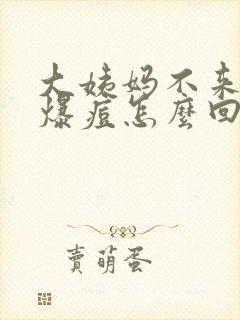 大姨妈不来
爆痘怎麼回
賣萌蛋